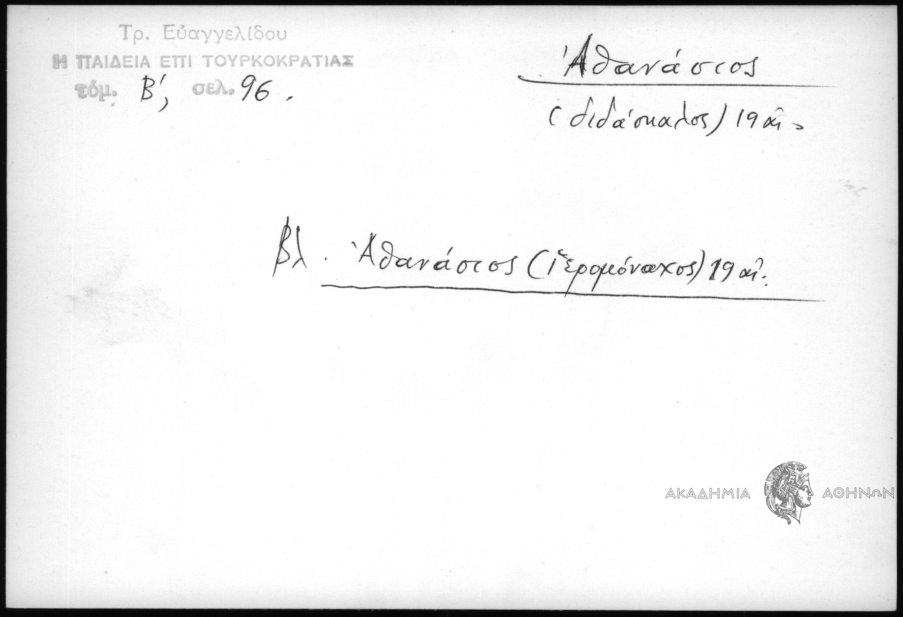 Τρ. Εὐαγγελίδου
Η ΠΑΙΔΕΙΑ ΕΠΙ ΤΟΥΡΚΟΚΡΑΤΙΑΣ
τόμ. Β', σελ. 96.
Ἀθανάσιος
(διδάσκαλος) 19 αἰ.
βλ. Ἀθανάσιος (ἱερομόναχος) 19 αἰ.
ΑΚΑΔΗΜΙΑ ΑΘΗΝΩΝ